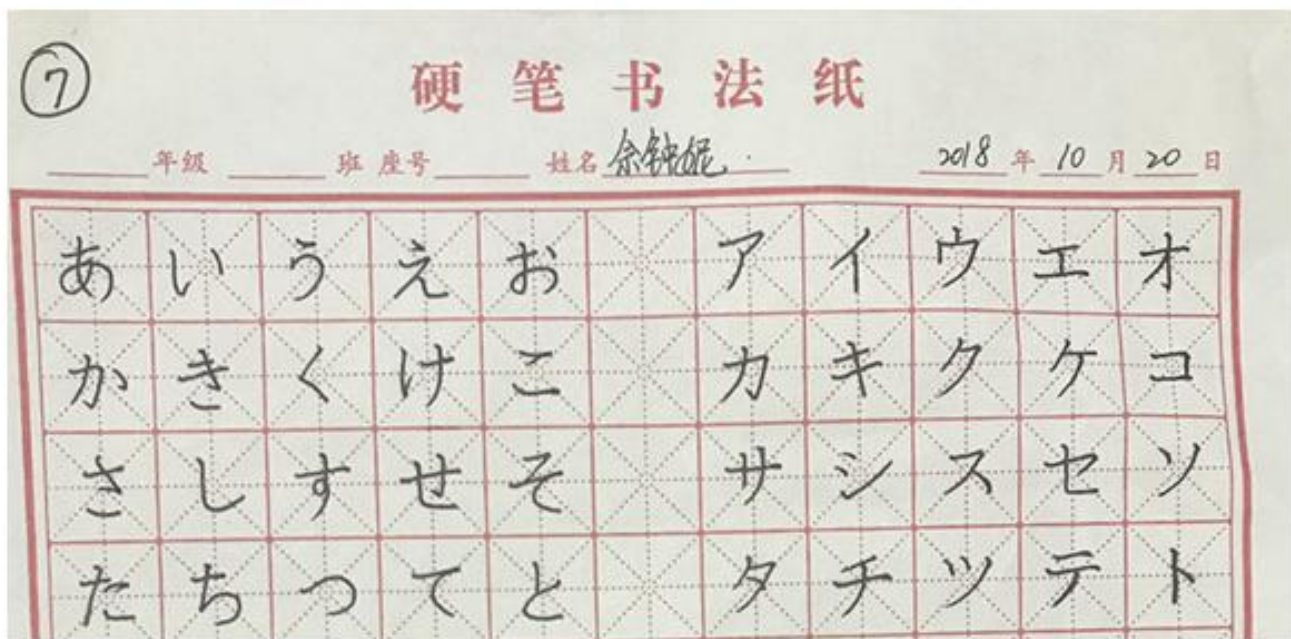 ⑦
硬笔书法纸
年级 班 座号 姓名 佘钟妮 2018 年 10 月 20 日
あ い う え お ア イ ウ エ オ
か き く け こ カ キ ク ケ コ
さ し す せ そ サ シ ス セ ソ
た ち つ て と タ チ ツ テ ト